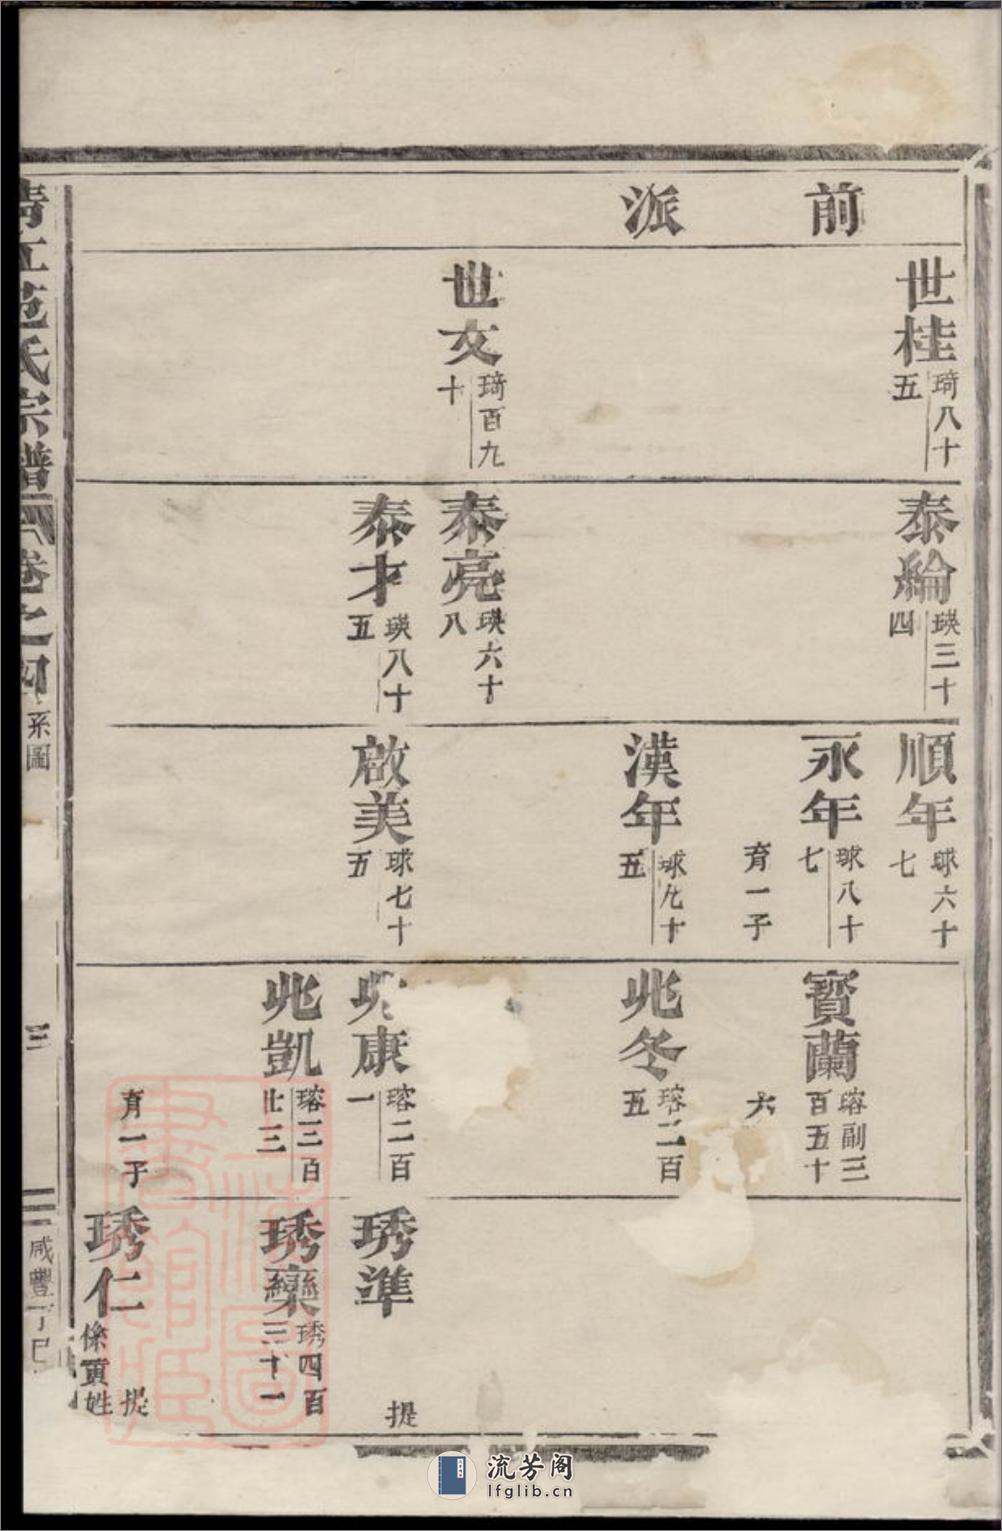 前派
世桂
琦八十五
世文
琦百九十
泰綸
瑛三十四
泰亮
瑛六十八
泰才
瑛八十五
順年
球六十七
永年
球八十七
育一子
漢年
球九十五
啟美
球七十五
寳蘭
瑢副三百五十
六
兆冬
瑢二百五
兆康
瑢二百一
兆凱
瑢三百廿三
育一子
琇準
提
琇欒
琇四百三十一
琇仁
提
係黄姓
清江范氏宗譜
卷之四
系圖
三
咸豐丁巳
流芳阁
lfglib.cn